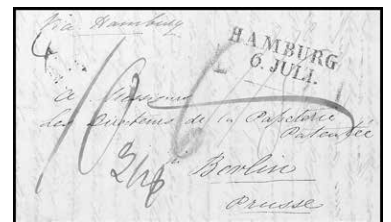 via Hamburg
HAMBURG
6. JULI.
A Messieurs
les Directeurs de la Papeterie
Patentée
Berlin
Prusse